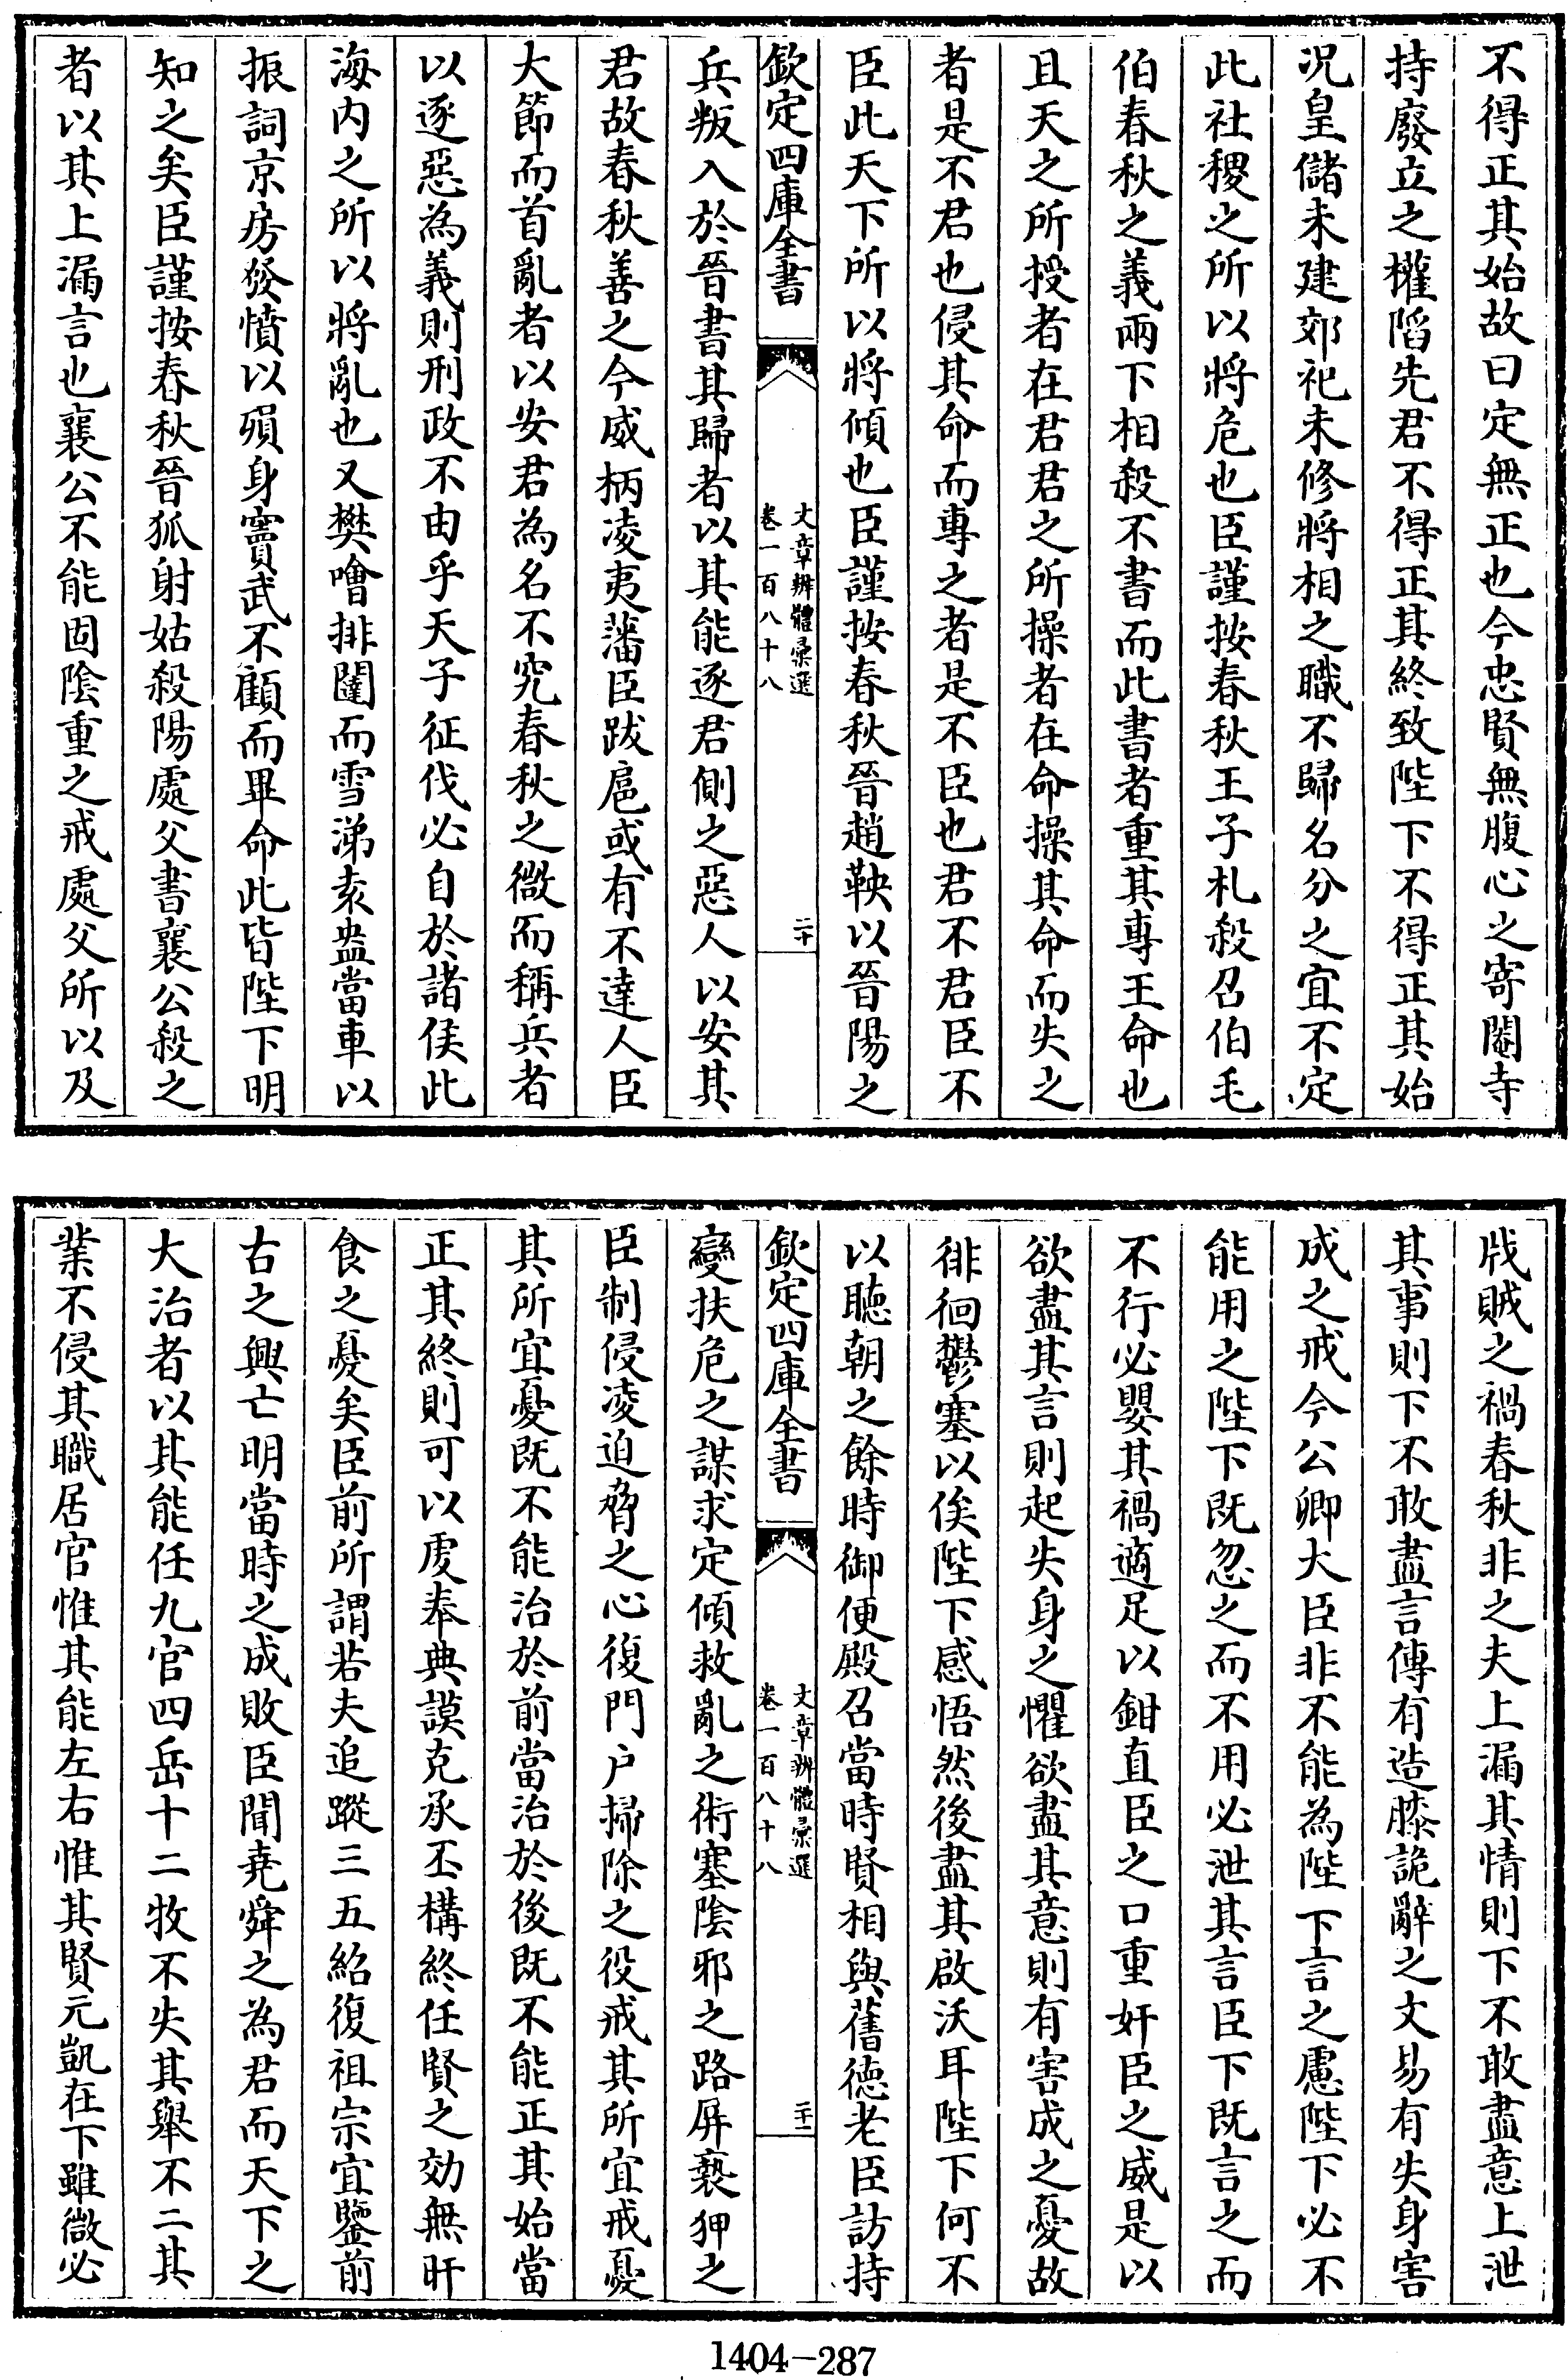 不得正其始故曰定無正也今忠賢無腹心之寄閽寺
持廢立之權陷先君不得正其終致陛下不得正其始
况皇儲未建郊祀未修將相之職不歸名分之宜不定
此社稷之所以將危也臣謹按春秋王子札殺召伯毛
伯春秋之義兩下相殺不書而此書者重其專王命也
且天之所授者在君君之所操者在命操其命而失之
者是不君也侵其命而專之者是不臣也君不君臣不
臣此天下所以將傾也臣謹按春秋晉趙鞅以晉陽之
欽定四庫全書
文章辨體彙選
卷一百八十八
二十
兵叛入於晉書其歸者以其能逐君側之惡人以安其
君故春秋善之今威柄凌夷藩臣跋扈或有不達人臣
大節而首亂者以安君為名不究春秋之微而稱兵者
以逐惡為義則刑政不由乎天子征伐必自於諸侯此
海内之所以將亂也又樊噲排闥而雪涕袁盎當車以
振詞京房發憤以殞身竇武不顧而畢命此皆陛下明
知之矣臣謹按春秋晉狐射姑殺陽處父書襄公殺之
者以其上漏言也襄公不能固陰重之戒處父所以及
戕賊之禍春秋非之夫上漏其情則下不敢盡意上泄
其事則下不敢盡言傳有造膝詭辭之文易有失身害
成之戒今公卿大臣非不能為陛下言之慮陛下必不
能用之陛下既忽之而不用必泄其言臣下既言之而
不行必嬰其禍適足以鉗直臣之口重奸臣之威是以
欲盡其言則起失身之懼欲盡其意則有害成之憂故
徘徊鬱塞以俟陛下感悟然後盡其啟沃耳陛下何不
以聽朝之餘時御便殿召當時賢相與舊德老臣訪持
欽定四庫全書
文章辨體彙選
卷一百八十八
二十一
變扶危之謀求定傾救亂之術塞陰邪之路屏褻狎之
臣制侵凌迫脅之心復門户掃除之役戒其所宜戒憂
其所宜憂既不能治於前當治於後既不能正其始當
正其終則可以虔奉典謨克承丕構終任賢之効無旰
食之憂矣臣前所謂若夫追蹤三五紹復祖宗宜鑒前
古之興亡明當時之成敗臣聞堯舜之為君而天下之
大治者以其能任九官四岳十二牧不失其舉不二其
業不侵其職居官惟其能左右惟其賢元凱在下雖微必
1404-287